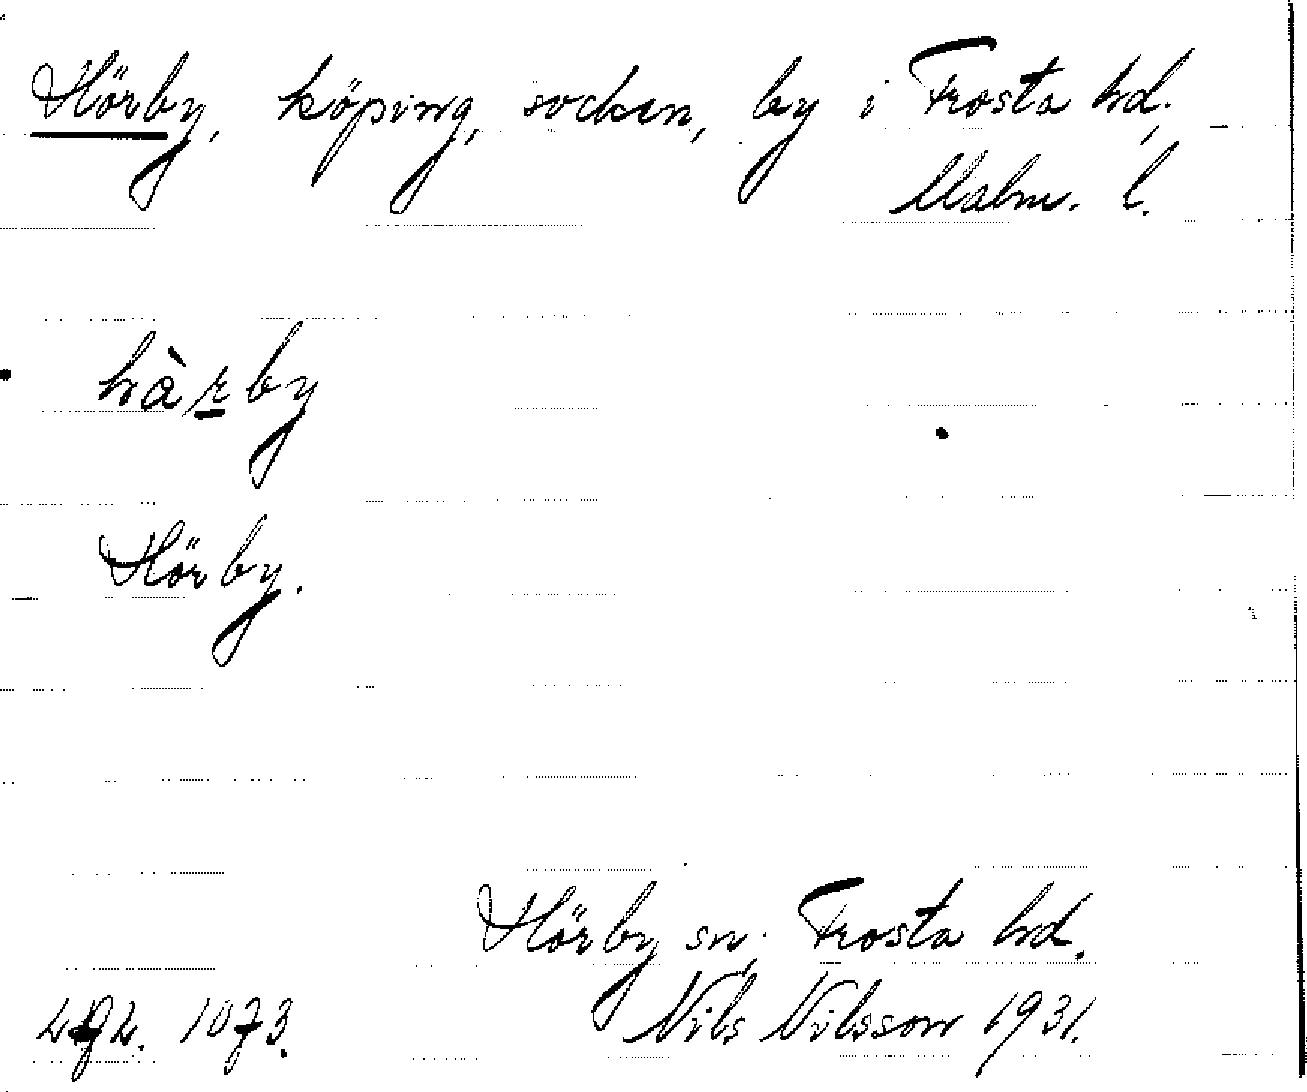 Hörby, köping, socken, by i Frosta hd,
Malm. l.
hàrby
Hörby.
Hörby sn, Frosta hd.
1073. Nils Nilsson 1931.